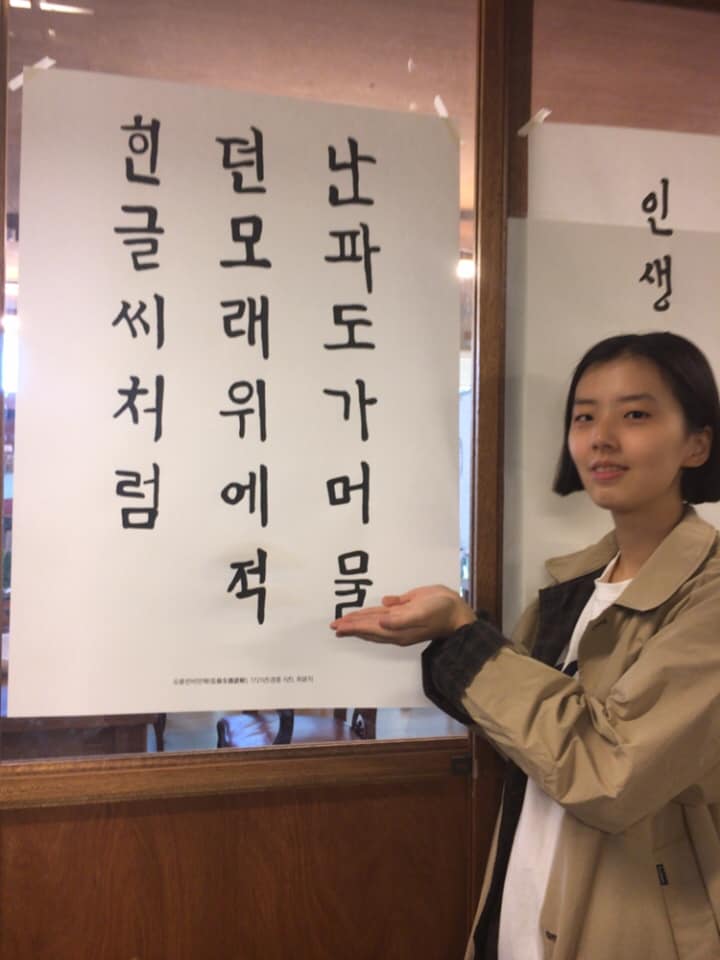 난파도가머물
던모래위에적
힌글씨처럼
인생